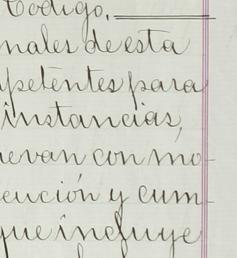 Código.
nales de esta
petentes para
instancias,
uevan con mo-
ención y cum-
que incluye